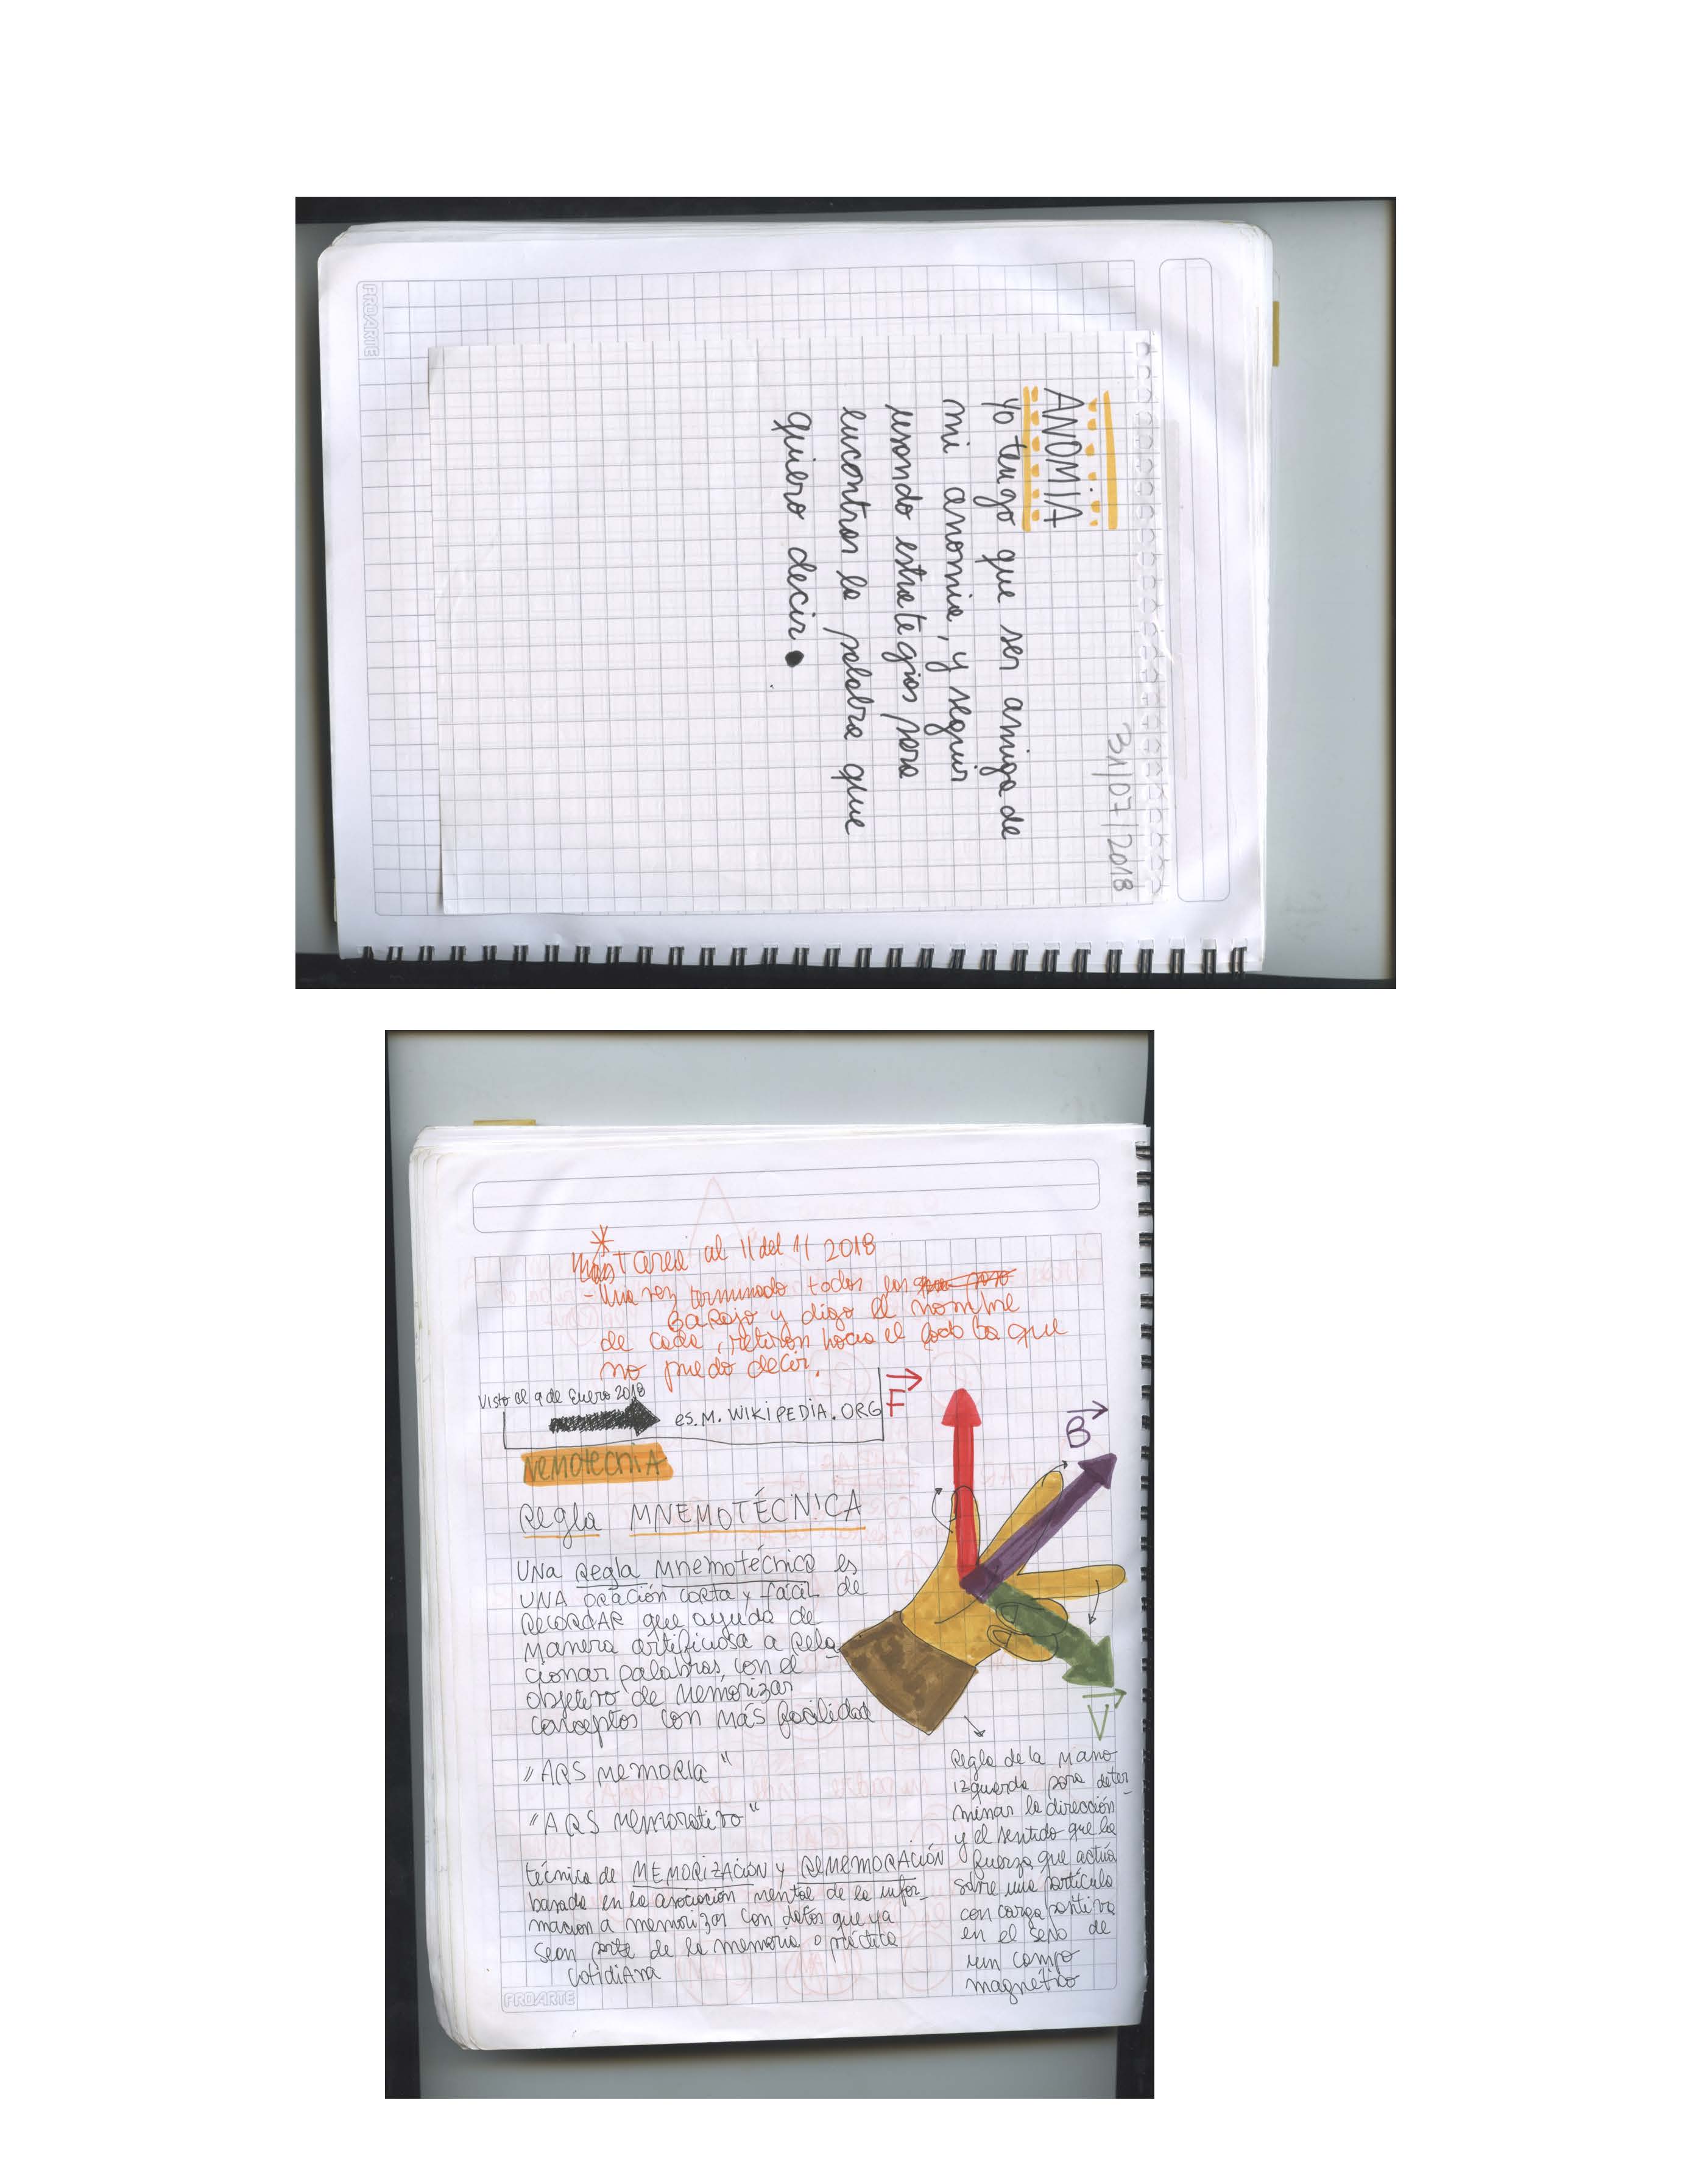 31/07/2018
ANOMIA
yo tengo que ser amiga de
mi anomia, y seguir
usando estrategias para
encontrar la palabra que
quiero decir.
PROARTE
Tarea al 11 del 11 2018
- Una vez terminado todos los
Barajo y digo el nombre
de cada, retiran hacia el lado la que
no puedo decir.
Visto el 9 de Enero 2018
es.M.WIKIPEDIA.ORG
F
B
V
NEMOTECNIA
Regla MNEMOTÉCNICA
UNA Regla Mnemotécnica es
UNA ORACIÓN CORTA y fácil de
RECORDAR que ayuda de
Manera artificiosa a Rela_
cionar palabras, con el
objetivo de Memorizar
conceptos con más facilidad
"ARS MEMORIA"
"ARS Memorativo"
técnica de MEMORIZACIÓN y REMEMORACIÓN
basada en la asociación mental de la infor_
macion a memorizar con datos que ya
sean parte de la memoria o práctica
cotidiana
Regla de la Mano
izquerda para deter_
minar la dirección
y el sentido que la
fuerza que actúa
sobre una partícula
con carga positiva
en el seno de
un campo
magnético
PROARTE